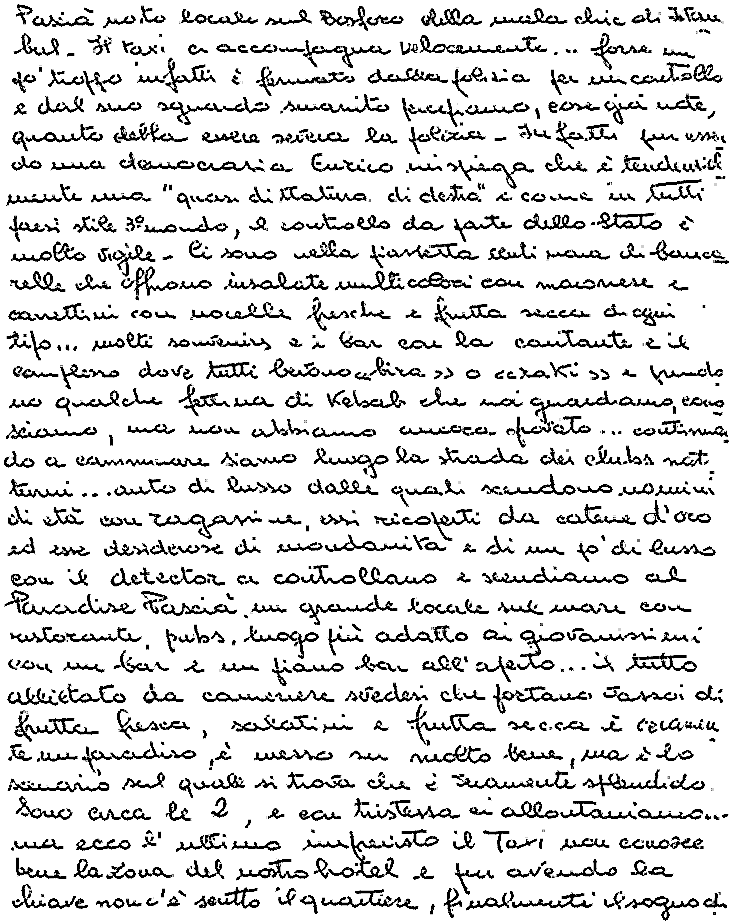 Pascià noto locale sul Bosforo della mala chic di Istan
bul - Il taxi ci accompagna velocemente... forse un
po' troppo infatti è fermato dalla polizia per un controllo
e dal suo sguardo smarrito percepiamo, cose già note,
quanto debba essere severa la polizia - Infatti pur essen
do una democrazia Enrico mi spiega che è tendenzial
mente una "quasi dittatura di destra" e come in tutti
paesi stile 3° mondo, il controllo da parte dello Stato è
molto vigile - Ci sono nella piazzetta centinaia di banca
relle che offrono insalate multicolori con maionese e
carrettini con nocelle fresche e frutta secca di ogni
tipo... molti souvenirs e i bar con la cantante e il
complesso dove tutti bevono "bira" o "raki" e prendo
no qualche fettina di Kebab che noi guardiamo, cono
sciamo, ma non abbiamo ancora provato... continuan
do a camminare siamo lungo la strada dei clubs not
turni... auto di lusso dalle quali scendono uomini
di età con ragazzine, essi ricoperti da catene d'oro
ed esse desiderose di mondanità e di un po' di lusso
con il detector ci controllano e scendiamo al
Paradise Pascià, un grande locale sul mare con
ristorante, pubs, luogo più adatto ai giovanissimi
con un bar e un piano bar all'aperto... il tutto
allietato da cameriere svedesi che portano vassoi di
frutta fresca, salatini e frutta secca è veramen
te un paradiso, è messo su molto bene, ma è lo
scenario sul quale si trova che è veramente splendido.
Sono circa le 2, e con tristezza ci allontaniamo...
ma ecco l'ultimo imprevisto il Taxi non conosce
bene la zona del nostro hotel e pur avendo la
chiave non c'è scritto il quartiere, finalmente il sogno di